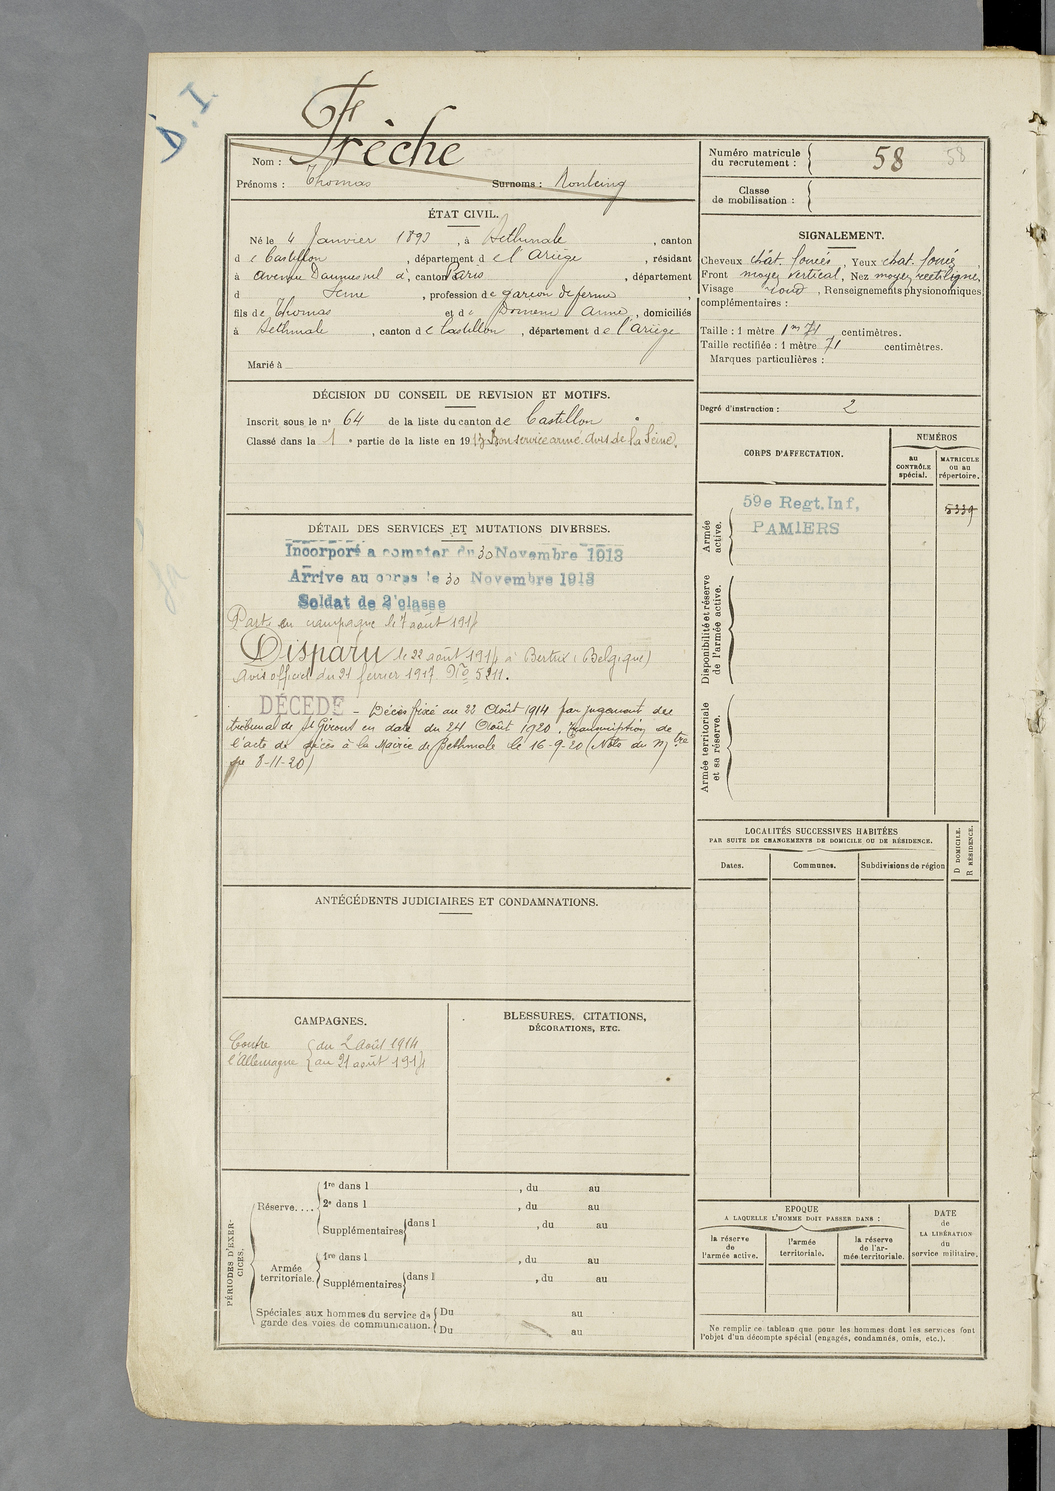 D. I.
Frèche
Nom :
Prénoms : Thomas Surnoms :
Numéro matricule du recrutement : 58 58
Classe de mobilisation :
ÉTAT CIVIL.
Né le 4 Janvier 1893, à Bethmale, canton
de Castillon, département de l'Ariège, résidant
à avenue Daumesnil, canton Paris, département
d Seine, profession de garçon de ferme,
fils de Thomas et de Domenc Anne, domiciliés
à Bethmale, canton de Castillon, département de l'Ariège
Marié à
SIGNALEMENT.
Cheveux chât. foncés, Yeux chat. foncé,
Front moyen vertical, Nez moyen rectiligne,
Visage rond, Renseignements physionomiques
complémentaires :
Taille : 1 mètre 1m 71 centimètres.
Taille rectifiée : 1 mètre 71 centimètres.
Marques particulières :
Degré d'instruction : 2
DÉCISION DU CONSEIL DE REVISION ET MOTIFS.
Inscrit sous le n° 64 de la liste du canton de Castillon
Classé dans la 1e partie de la liste en 1913 Bon service armé. Avis de la Seine.
CORPS D'AFFECTATION.
NUMÉROS
au CONTRÔLE spécial.
MATRICULE ou au répertoire.
Armée active.
59e Regt. Inf, 5339
PAMIERS
Disponibilité et réserve de l'armée active.
Armée territoriale et sa réserve.
DÉTAIL DES SERVICES ET MUTATIONS DIVERSES.
Incorporé a compter du 30 Novembre 1913
Arrive au corps le 30 Novembre 1913
Soldat de 2e classe
Parti en campagne le 7 août 1914
Disparu le 22 août 1914 à Bertrix (Belgique)
Avis officiel du 21 février 1917 No 5211.
DÉCÉDÉ - Décès fixé au 22 Août 1914 par jugement du
tribunal de St Girons en date du 24 Août 1920. Transcription de
l'acte de décès à la Mairie de Bethmale le 16-9-20 (Note du Mtre
du 8-11-20)
LOCALITÉS SUCCESSIVES HABITÉES
PAR SUITE DE CHANGEMENTS DE DOMICILE OU DE RÉSIDENCE.
Dates. Communes. Subdivisions de région
D DOMICILE.
R RÉSIDENCE.
ANTÉCÉDENTS JUDICIAIRES ET CONDAMNATIONS.
CAMPAGNES.
Contre du 2 Août 1914
l'Allemagne au 21 août 1914
BLESSURES, CITATIONS,
DÉCORATIONS, ETC.
PÉRIODES D'EXERCICES.
Réserve.... 1re dans l , du au
2e dans l , du au
Supplémentaires dans l , du au
Armée territoriale. 1re dans l , du au
Supplémentaires dans l , du au
Spéciales aux hommes du service de garde des voies de communication. Du au
Du au
EPOQUE
A LAQUELLE L'HOMME DOIT PASSER DANS :
la réserve de l'armée active.
l'armée territoriale.
la réserve de l'armée territoriale.
DATE de LA LIBÉRATION du service militaire.
Ne remplir ce tableau que pour les hommes dont les services font
l'objet d'un décompte spécial (engagés, condamnés, omis, etc.).